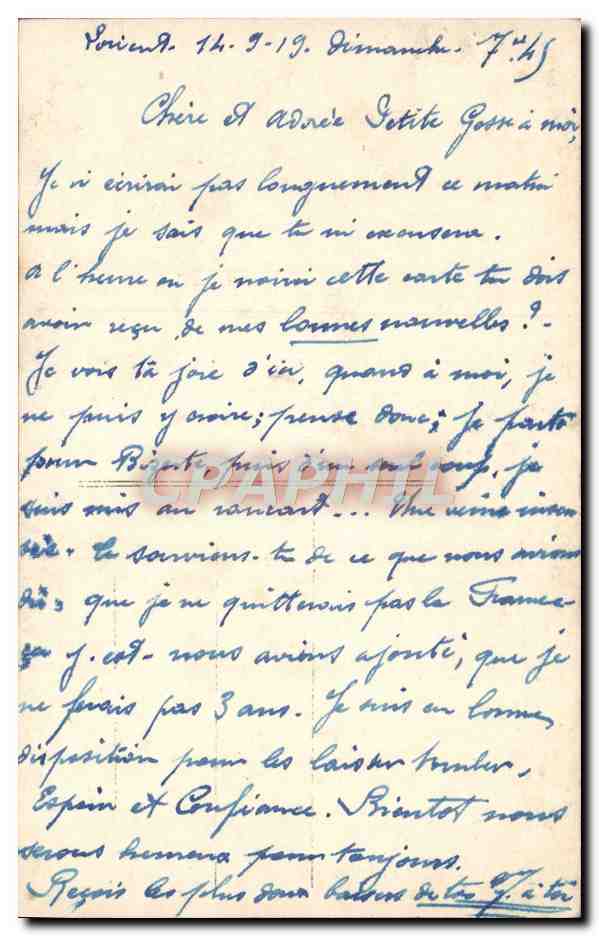 Lorient - 14-9-19. dimanche. 7h 45
Chère et Adorée Petite Gosse à moi,
Je n'écrirai pas longuement ce matin
mais je sais que tu m'excusera.
A l'heure ou je noirci cette carte tu dois
avoir reçu de mes bonnes nouvelles ? -
Je vois ta joie d'ici, quand à moi, je
ne puis y croire; pense donc; Je parts
pour Bizerte, puis d'un seul coup, je
suis mis au rancart... Une veine insen
sée. Te souviens-tu de ce que nous avions
dit, que je ne quitterais pas la France
ça y-est - nous avions ajouté, que je
ne ferais pas 3 ans. Je suis en bonne
disposition pour les laisser tomber,
Espoir et Confiance. Bientot nous
serons heureux pour toujours.
Reçois les plus doux baisers de ton J. à toi
CPAPHIL